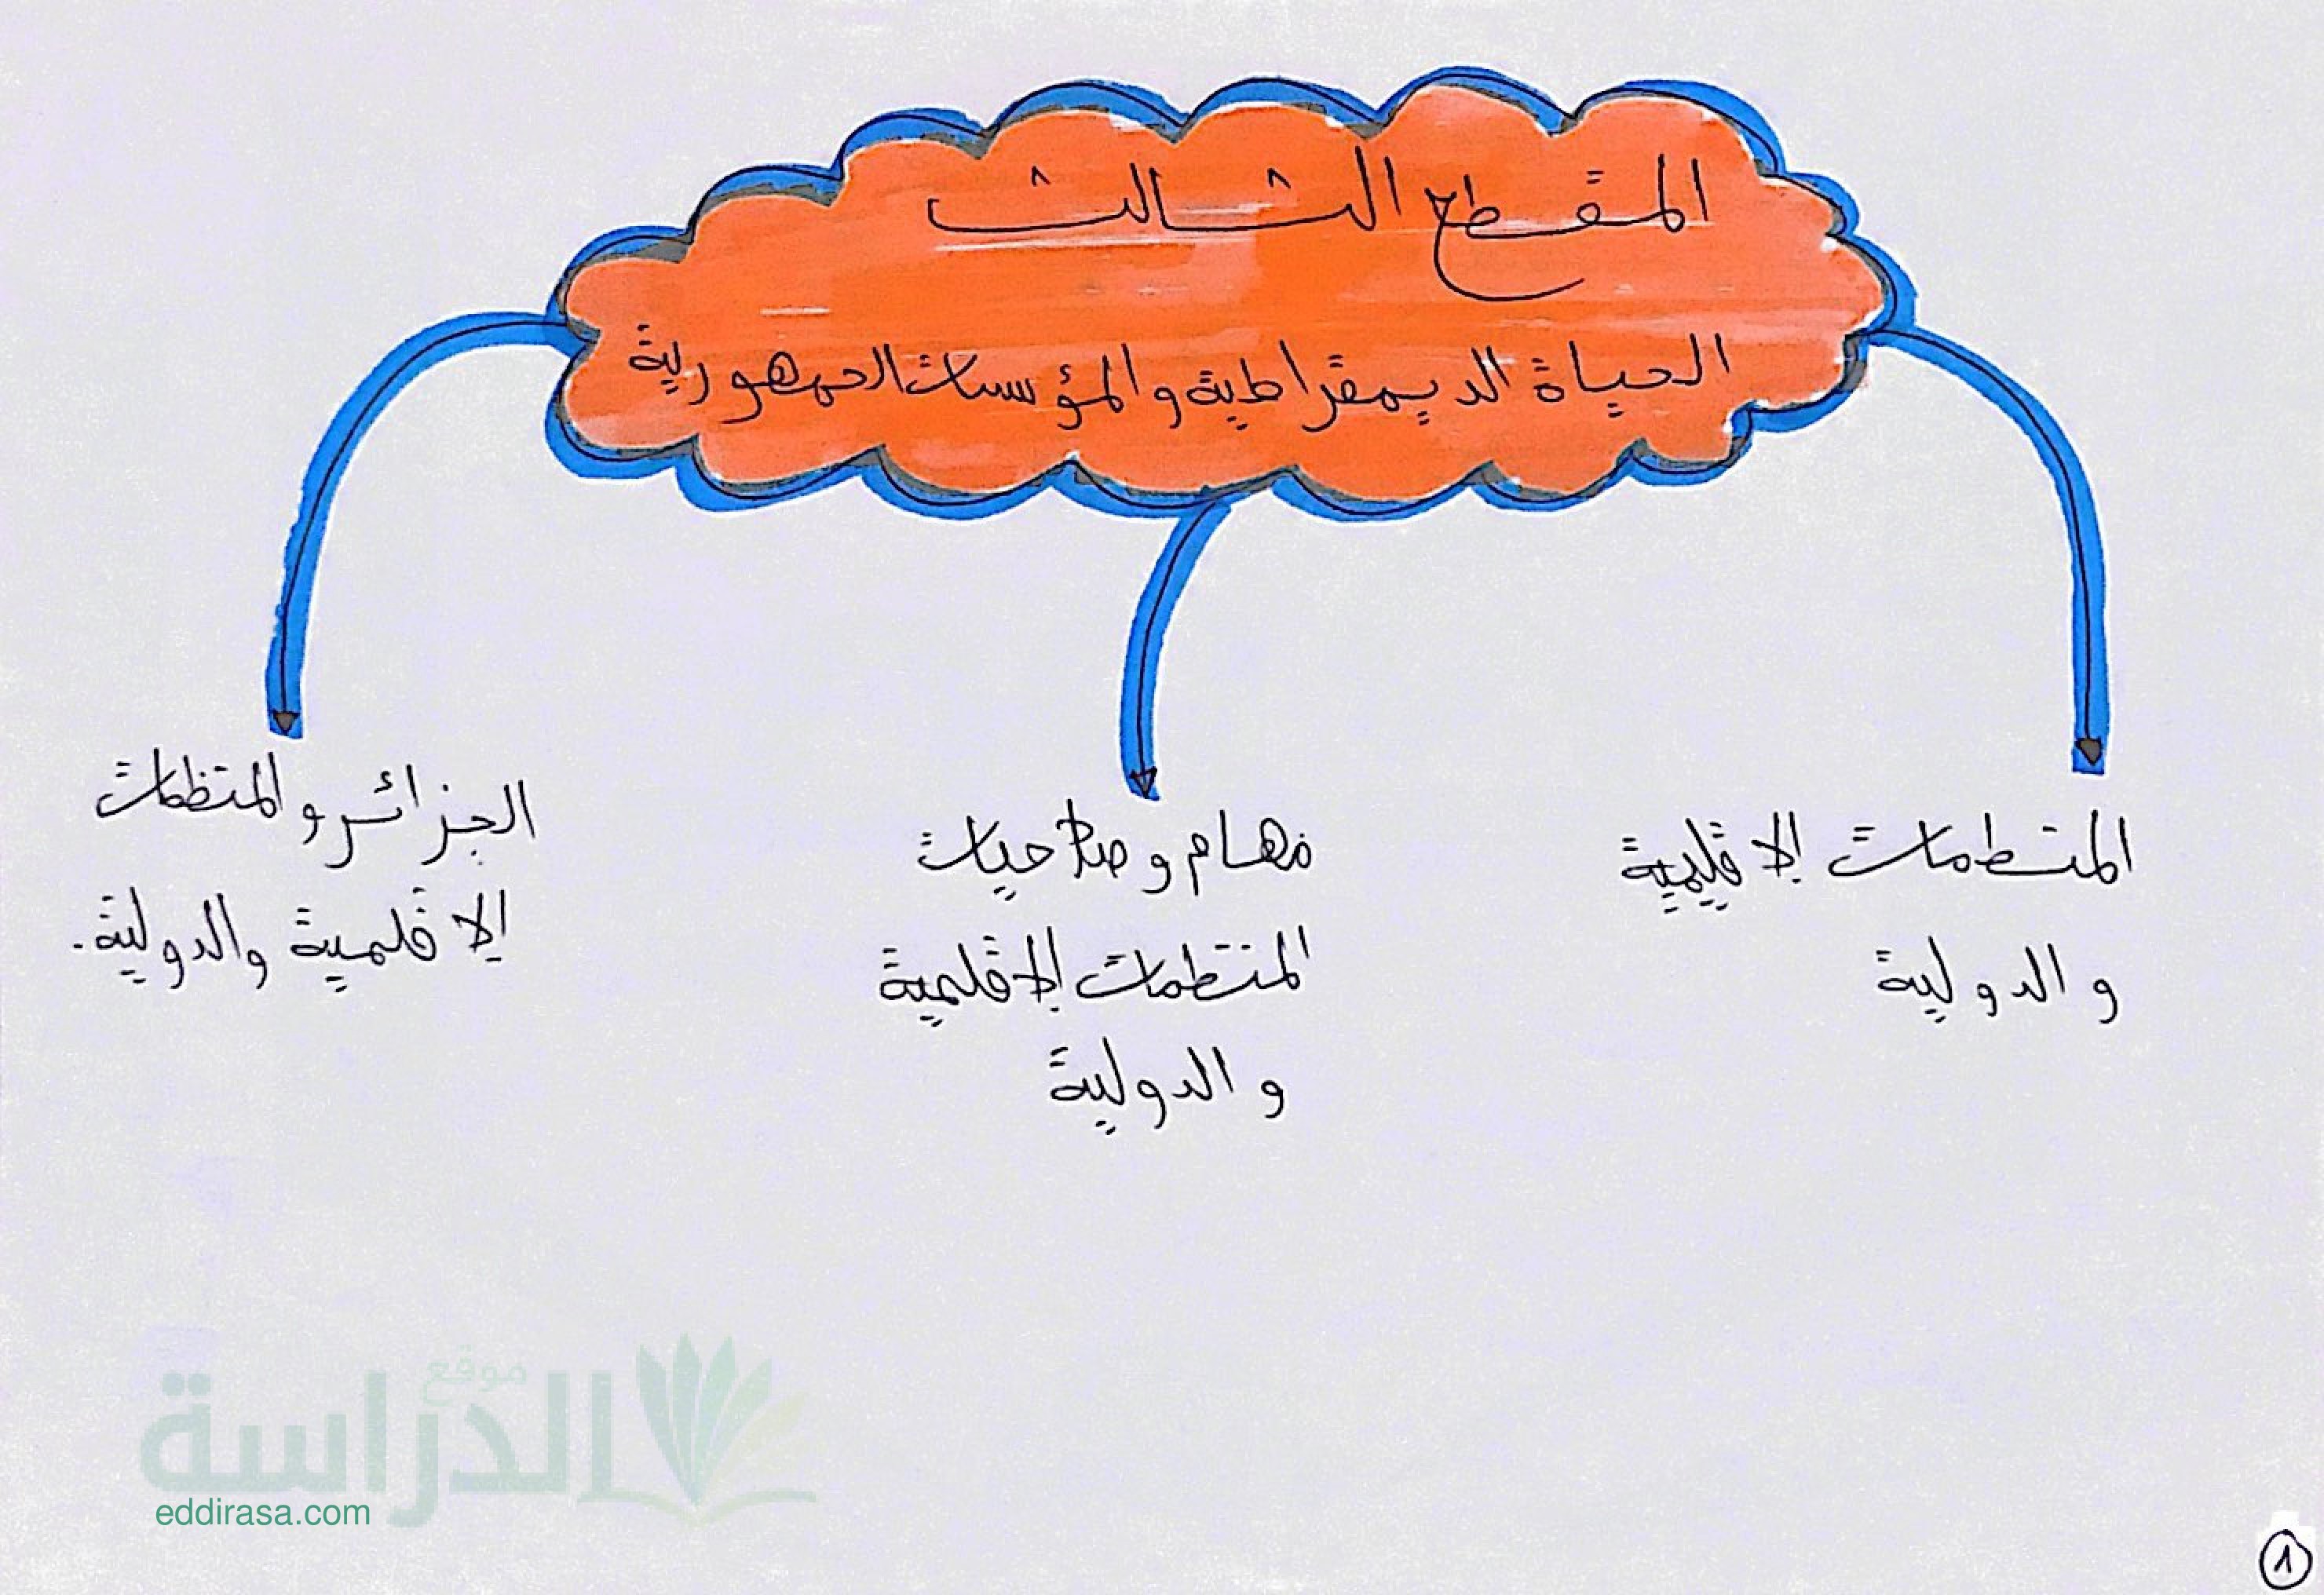 المقطع الثالث
الحياة الديمقراطية والمؤسسات الجمهورية
المنظمات الإقليمية
والدولية
مهام وصلاحيات
المنظمات الإقلمية
والدولية
الجزائر والمنظمات
الإقلمية والدولية.
موقع
الدراسة
eddirasa.com
1